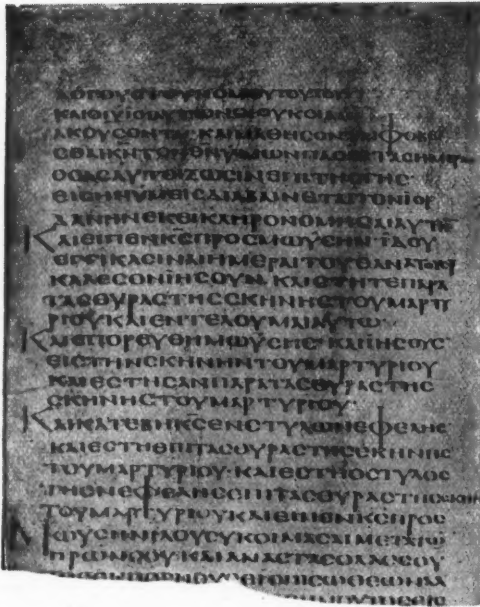 ΛΟΓΟΥΣΤΟΥΝΟΜΟΥΤΟΥΤΟΥ
ΚΑΙΟΙΥΙΟΙΑΥΤΩΝΟΙΟΥΚΟΙΔΑΣΙΝ
ΑΚΟΥΣΟΝΤΑΙ· ΚΑΙΜΑΘΗΣΟΝΤΑΙΦΟΒΕΙ
ΣΘΑΙΚ̅Ν̅ΤΟΝΘ̅Ν̅ΥΜΩΝΠΑΣΑΣΤΑΣΗΜΕΡΑΣ
ΟΣΑΣΑΥΤΟΙΖΩΣΙΝΕΠΙΤΗΣΓΗΣ·
ΕΙΣΗΝΥΜΕΙΣΔΙΑΒΑΙΝΕΤΑΙΤΟΝΙΟΡ
ΔΑΝΗΝΕΚΕΙΚΛΗΡΟΝΟΜΗΣΑΙΑΥΤΗ̅
ΚΑΙΕΙΠΕΝΚ̅Σ̅ΠΡΟΣΜΩΥΣΗΝ· ΪΔΟΥ
ΕΓΓΙΚΑΣΙΝΑΙΗΜΕΡΑΙΤΟΥΘΑΝΑΤΟΥΣΟΥ
ΚΑΛΕΣΟΝΙΗΣΟΥΝ· ΚΑΙΣΤΗΤΕΠΑΡΑ
ΤΑΣΘΥΡΑΣΤΗΣΣΚΗΝΗΣΤΟΥΜΑΡΤΥ
ΡΙΟΥΚΑΙΕΝΤΕΛΟΥΜΑΙΑΥΤΩ·
ΚΑΙΕΠΟΡΕΥΘΗΜΩΥΣΗΣ· ΚΑΙΙΗΣΟΥΣ
ΕΙΣΤΗΝΣΚΗΝΗΝΤΟΥΜΑΡΤΥΡΙΟΥ
ΚΑΙΕΣΤΗΣΑΝΠΑΡΑΤΑΣΘΥΡΑΣΤΗΣ
ΣΚΗΝΗΣΤΟΥΜΑΡΤΥΡΙΟΥ·
ΚΑΙΚΑΤΕΒΗΚ̅Σ̅ΕΝΣΤΥΛΩΝΕΦΕΛΗΣ·
ΚΑΙΕΣΤΗΕΠΙΤΑΣΘΥΡΑΣΤΗΣΣΚΗΝΗΣ
ΤΟΥΜΑΡΤΥΡΙΟΥ· ΚΑΙΕΣΤΗΟΣΤΥΛΟΣ
ΤΗΣΝΕΦΕΛΗΣΕΠΙΤΑΣΘΥΡΑΣΤΗΣΣΚΗΝ
ΤΟΥΜΑΡΤΥΡΙΟΥΚΑΙΕΙΠΕΝΚ̅Σ̅ΠΡΟΣ
ΜΩΥΣΗΝΙΔΟΥΣΥΚΟΙΜΑΣΑΙΜΕΤΑΤΩ
ΠΡΩΝΣΟΥ· ΚΑΙΑΝΑΣΤΑΣΟΛΑΟΣΟΥ
ΟΠΙΣΩΘΕΩΝΑΛ